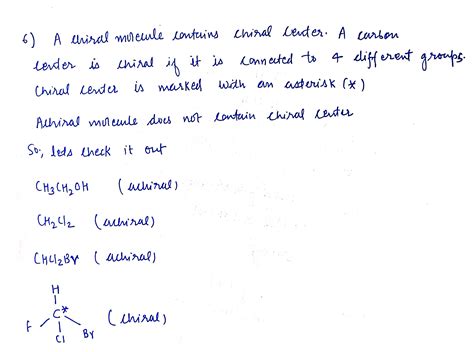 6) A chiral molecule contains chiral center. A carbon
center is chiral if it is connected to 4 different groups.
Chiral center is marked with an asterisk (*)
Achiral molecule does not contain chiral center
So, lets check it out
CH₃CH₂OH (achiral)
CH₂Cl₂ (achiral)
CHCl₂Br (achiral)
H
C*
F Cl Br (chiral)